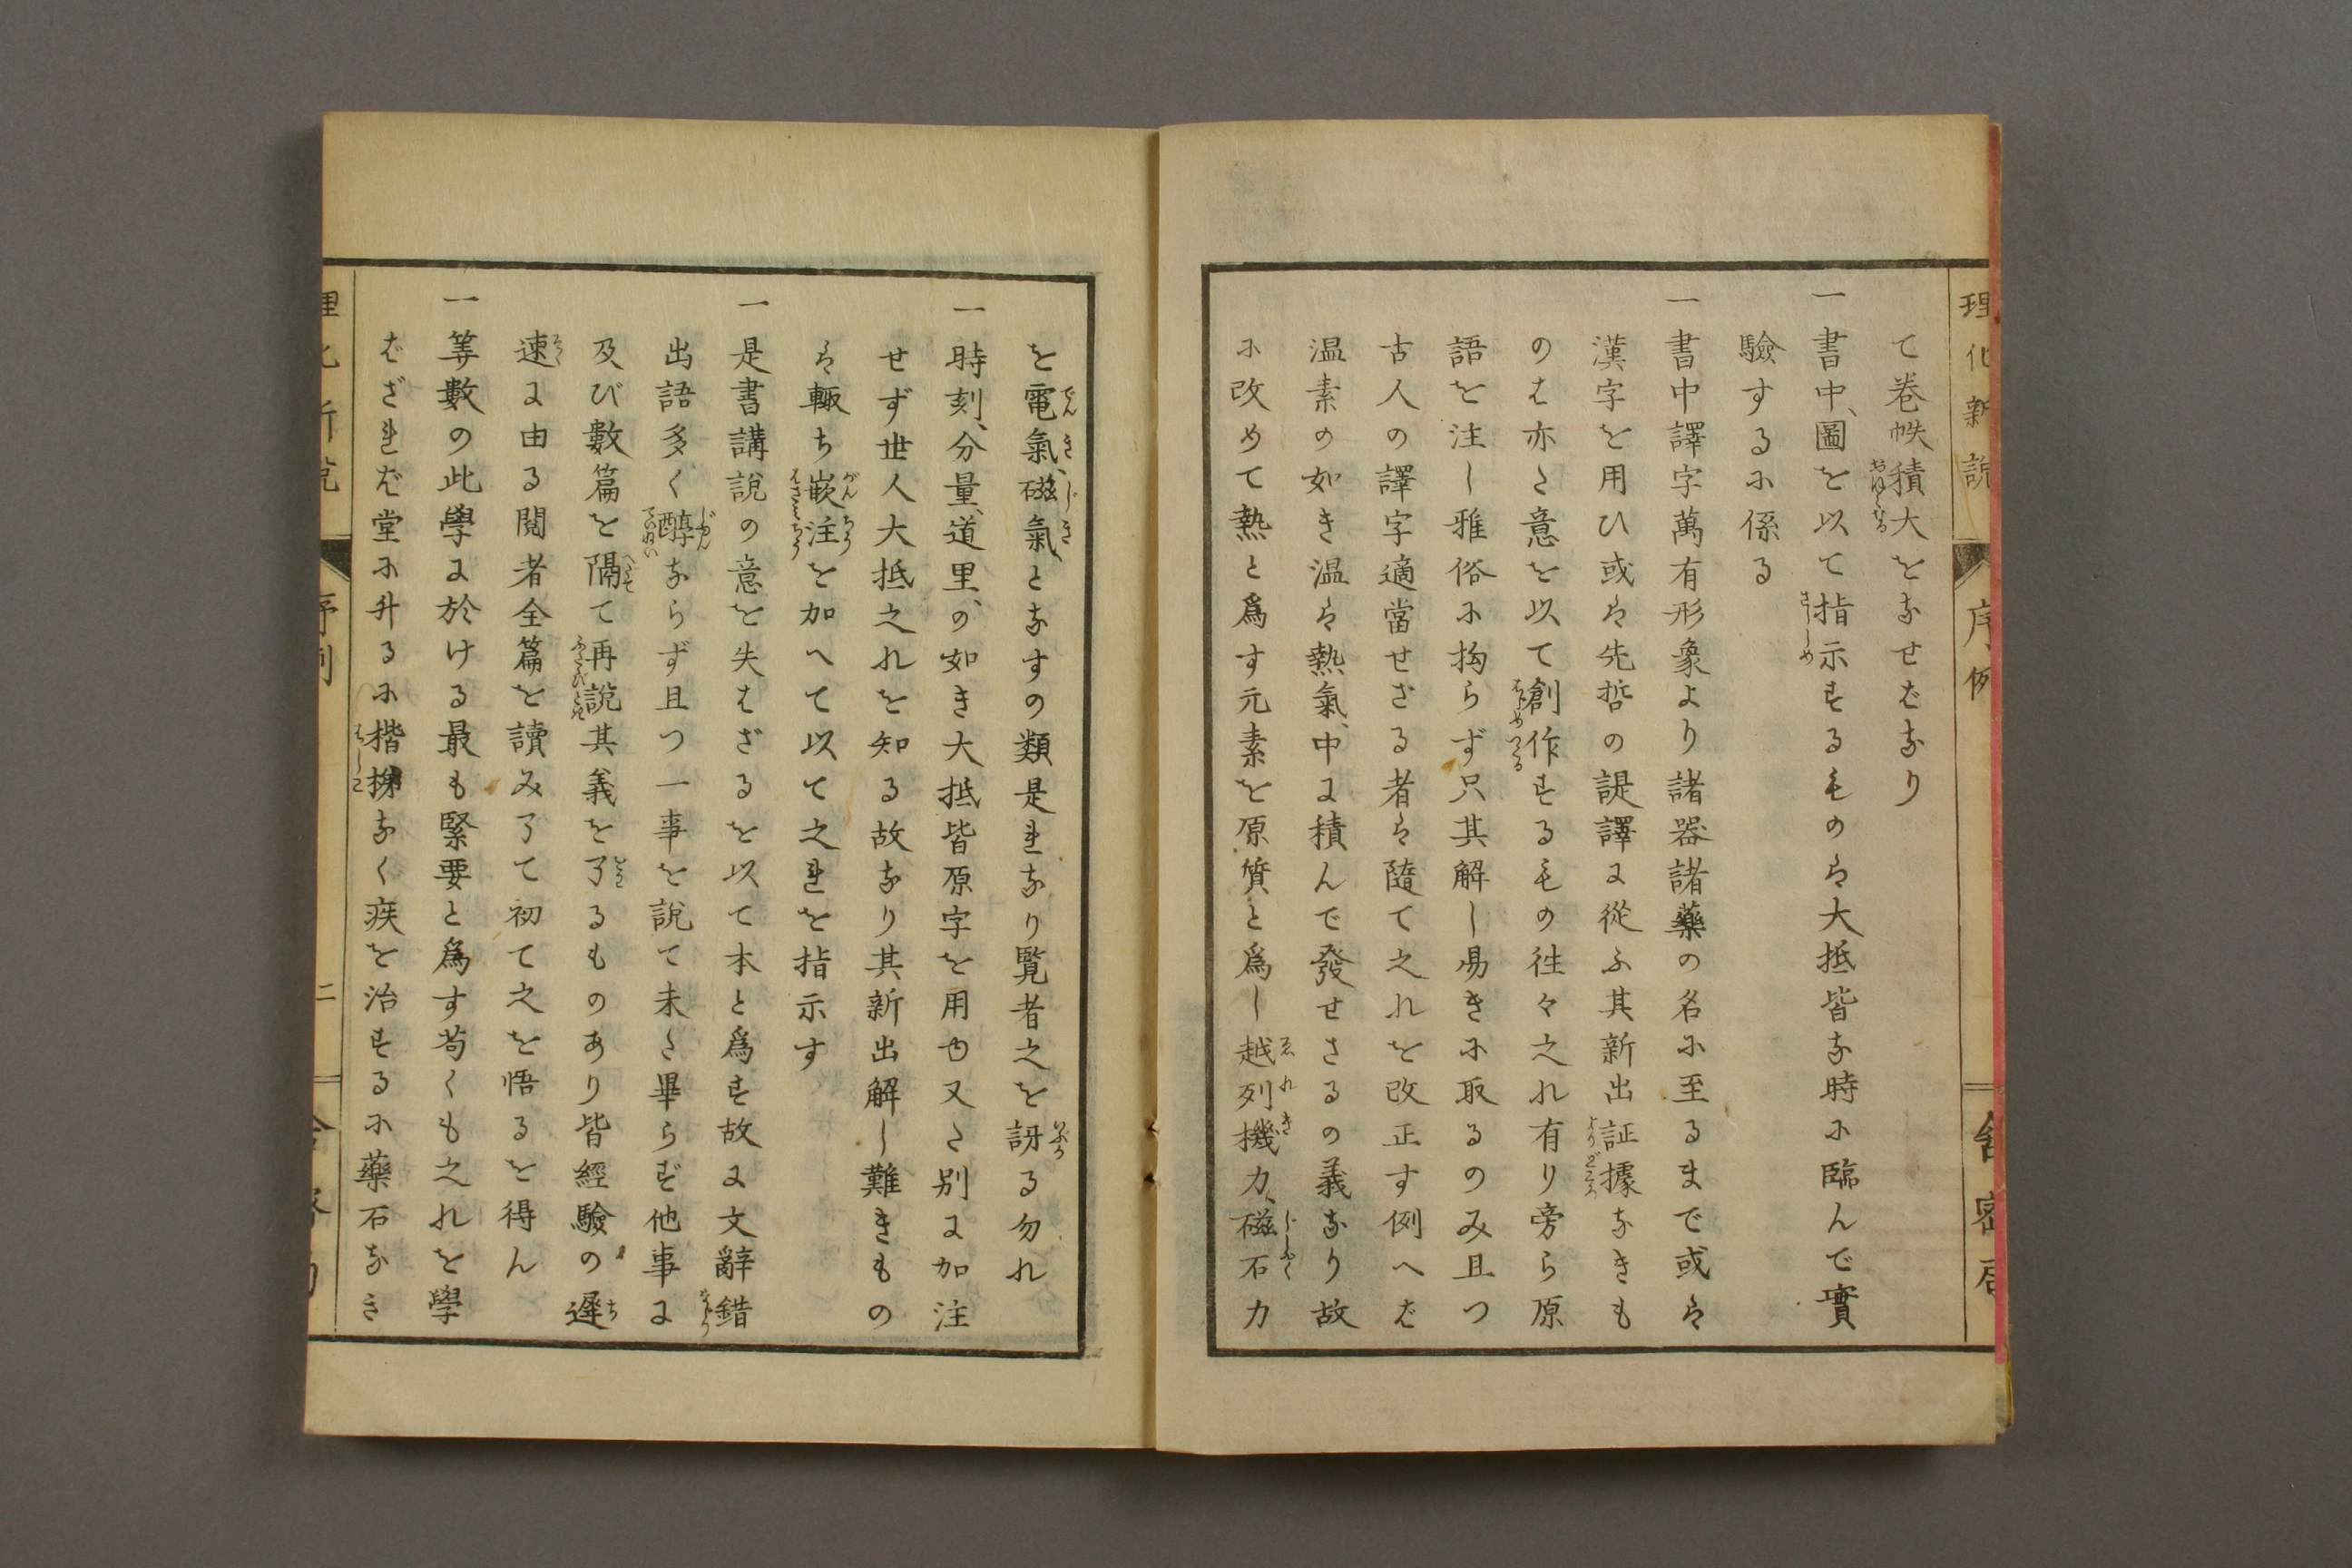 理化新説
序例
舎密局
て巻帙積大をなせばなり
一書中、圖を以て指示するものは大抵皆な時に臨んで實
驗するに係る
一書中譯字萬有形象より諸器諸藥の名に至るまで或は
漢字を用ひ或は先哲の諟譯に從ふ其新出証據なきも
のは亦た意を以て創作するもの徃々之れ有り旁ら原
語を注し雅俗に拘らず只其解し易きに取るのみ且つ
古人の譯字適當せざる者は隨て之れを改正す例へば
温素の如き温は熱氣、中に積んで發せさるの義なり故
に改めて熱と爲す元素を原質と爲し越列機力、磁石力
を電氣、磁氣となすの類是れなり覧者之を訝る勿れ
一時刻、分量、道里、の如き大抵皆原字を用ゆ又た別に加注
せず世人大抵之れを知る故なり其新出解し難きもの
は輙ち嵌注を加へて以て之れを指示す
一是書講説の意を失はざるを以て本と爲す故に文辭錯
出語多く醇ならず且つ一事を説て未た畢らず他事に
及び數篇を隔て再説其義を了るものあり皆經驗の遲
速に由る閲者全篇を讀み了て初て之を悟るを得ん
一等數の此學に於ける最も緊要と爲す苟くも之れを學
ばざれば堂に升るに楷梯なく疾を治するに藥石なき
理化新説
序例
二
舎密局